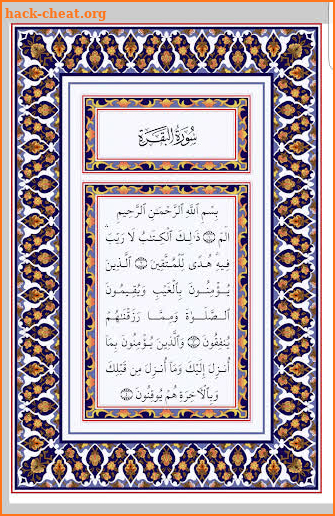 hack-cheat.org
سُورَةُ البَقَرَةِ
بِسْمِ اللَّهِ الرَّحْمَٰنِ الرَّحِيمِ
الٓمٓ ۝ ذَٰلِكَ الْكِتَٰبُ لَا رَيْبَ ۛ
فِيهِ ۛ هُدًى لِّلْمُتَّقِينَ ۝ الَّذِينَ
يُؤْمِنُونَ بِالْغَيْبِ وَيُقِيمُونَ
الصَّلَوٰةَ وَمِمَّا رَزَقْنَٰهُمْ
يُنفِقُونَ ۝ وَالَّذِينَ يُؤْمِنُونَ بِمَا
أُنزِلَ إِلَيْكَ وَمَا أُنزِلَ مِن قَبْلِكَ
وَبِالْآخِرَةِ هُمْ يُوقِنُونَ ۝
hack-cheat.org